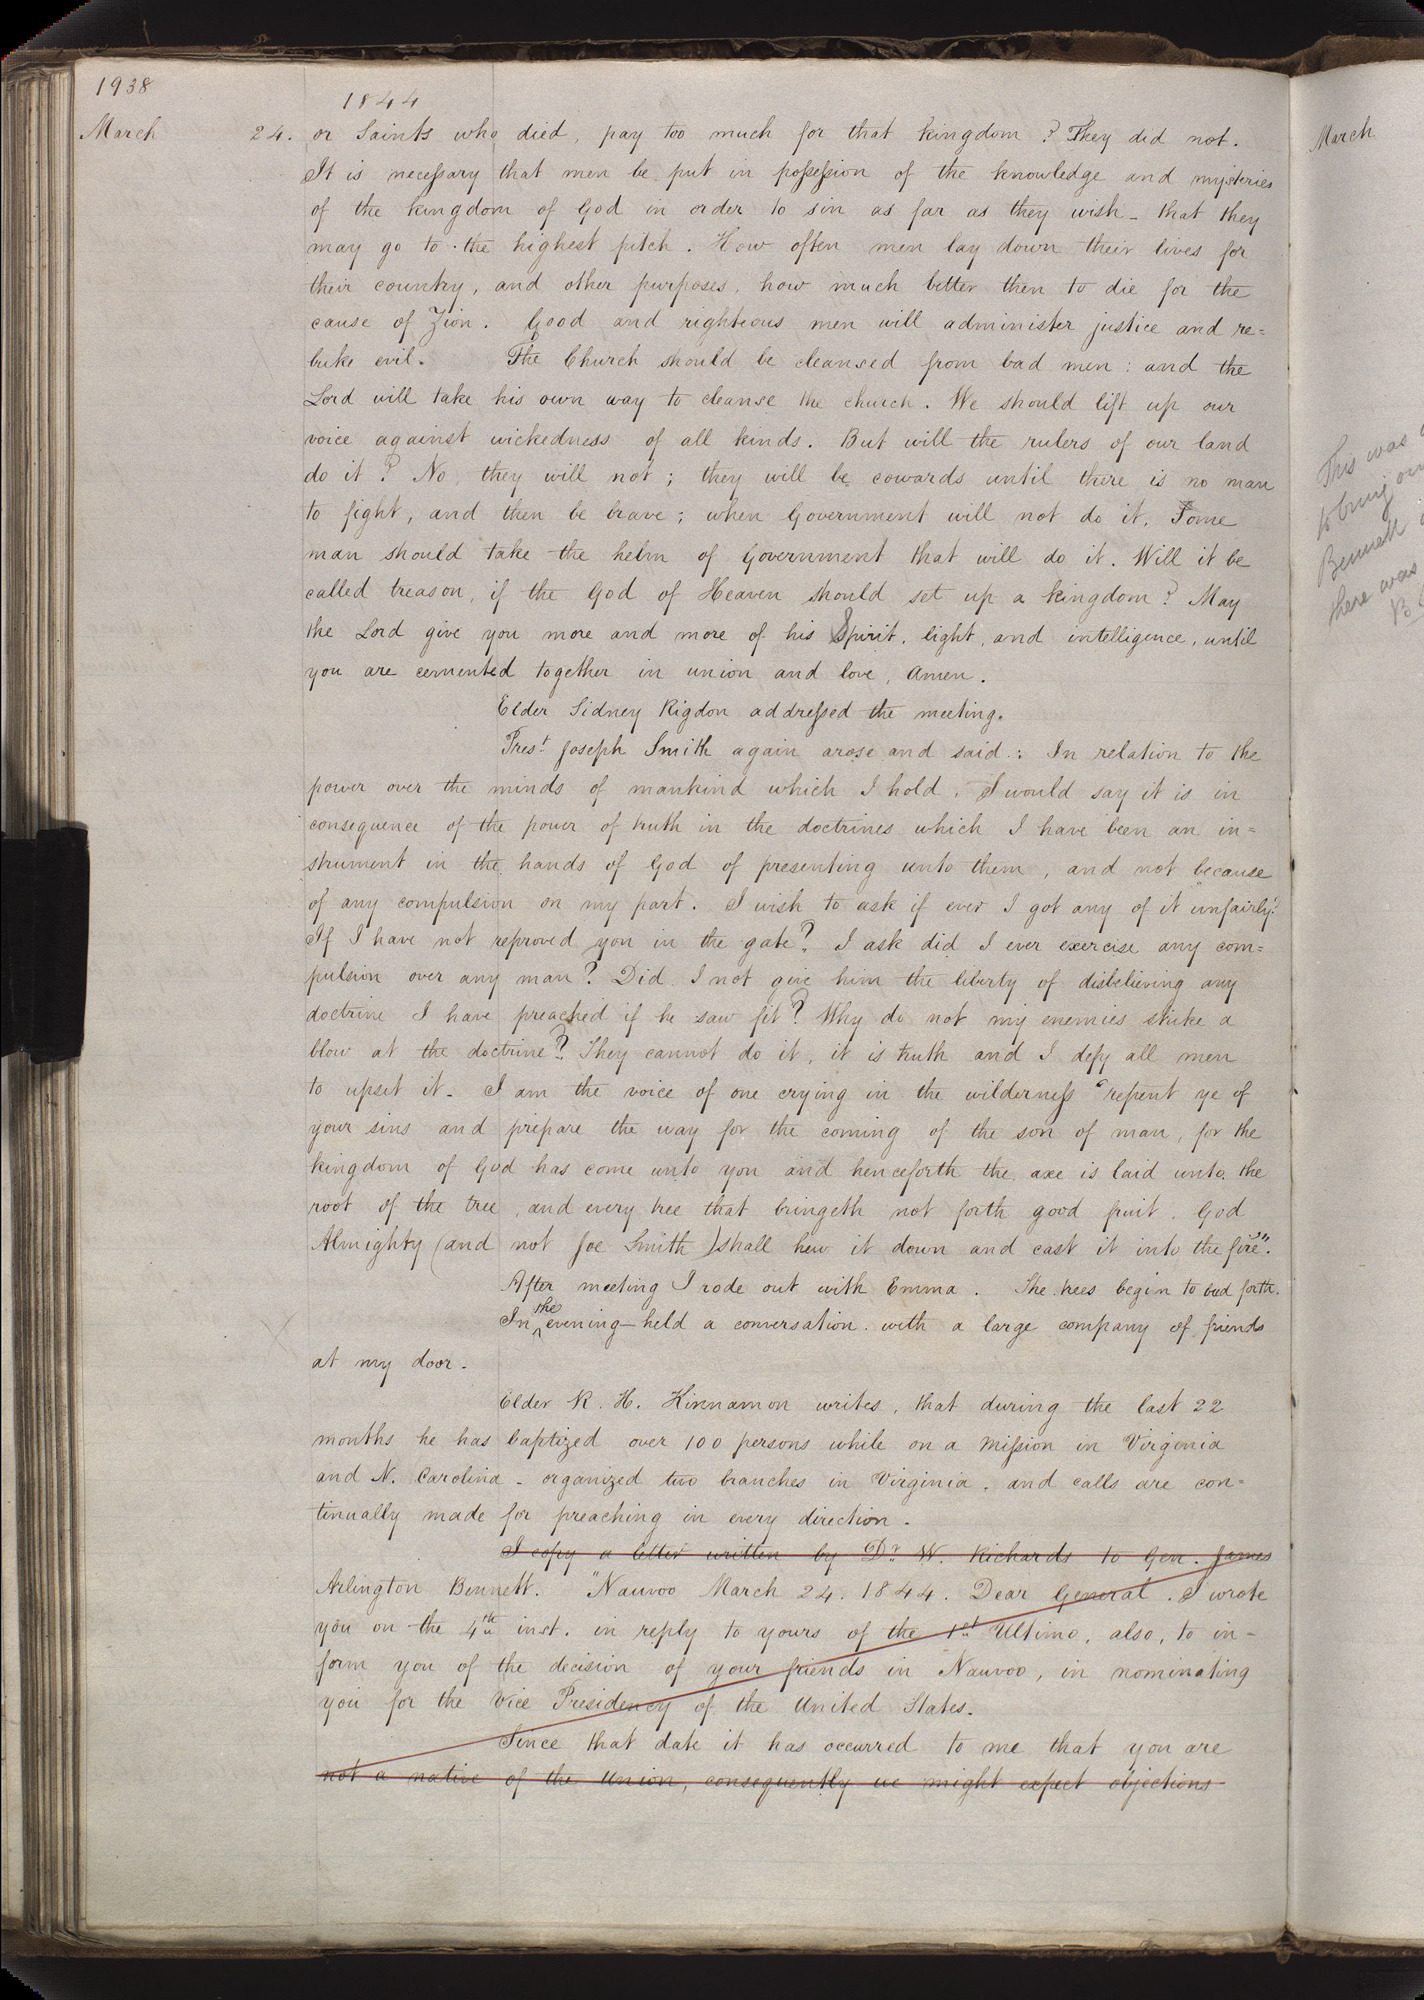 1938
1844
March 24. or Saints who died, pay too much for that kingdom? They did not.
It is necessary that men be put in possession of the knowledge and mysteries
of the kingdom of God in order to sin as far as they wish - that they
may go to the highest pitch. How often men lay down their lives for
their country, and other purposes, how much better then to die for the
cause of Zion. Good and righteous men will administer justice and re=
buke evil. The Church should be cleansed from bad men: and the
Lord will take his own way to cleanse the church. We should lift up our
voice against wickedness of all kinds. But will the rulers of our land
do it? No, they will not; they will be cowards until there is no man
to fight, and then be brave; when Government will not do it, Some
man should take the helm of Government that will do it. Will it be
called treason, if the God of Heaven should set up a kingdom? May
the Lord give you more and more of his Spirit, light, and intelligence, until
you are cemented together in union and love, Amen.
Elder Sidney Rigdon addressed the meeting.
Prest. Joseph Smith again arose and said: In relation to the
power over the minds of mankind which I hold, I would say it is in
consequence of the power of truth in the doctrines which I have been an in=
strument in the hands of God of presenting unto them, and not because
of any compulsion on my part. I wish to ask if ever I got any of it unfairly?
If I have not reproved you in the gate? I ask did I ever exercise any com=
pulsion over any man? Did I not give him the liberty of disbelieving any
doctrine I have preached if he saw fit? Why do not my enemies strike a
blow at the doctrine? They cannot do it, it is truth and I defy all men
to upset it. I am the voice of one crying in the wilderness "repent ye of
your sins and prepare the way for the coming of the son of man, for the
kingdom of God has come unto you and henceforth the axe is laid unto the
root of the tree, and every tree that bringeth not forth good fruit, God
Almighty (and not Joe Smith) shall hew it down and cast it into the fire".
After meeting I rode out with Emma. The trees begin to bud forth.
In the evening held a conversation with a large company of friends
at my door.
Elder R. H. Kinnamon writes, that during the last 22
months he has baptized over 100 persons while on a mission in Virginia
and N. Carolina - organized two branches in Virginia, and calls are con=
tinually made for preaching in every direction.
I copy a letter written by Dr. W. Richards to Gen. James
Arlington Bennett. "Nauvoo March 24. 1844. Dear General. I wrote
you on the 4th inst. in reply to yours of the 1st Ultimo, also, to in=
form you of the decision of your friends in Nauvoo, in nominating
you for the Vice Presidency of the United States.
Since that date it has occurred to me that you are
not a native of the Union, consequently we might expect objections
March
This was
to bring
Bennett
there was